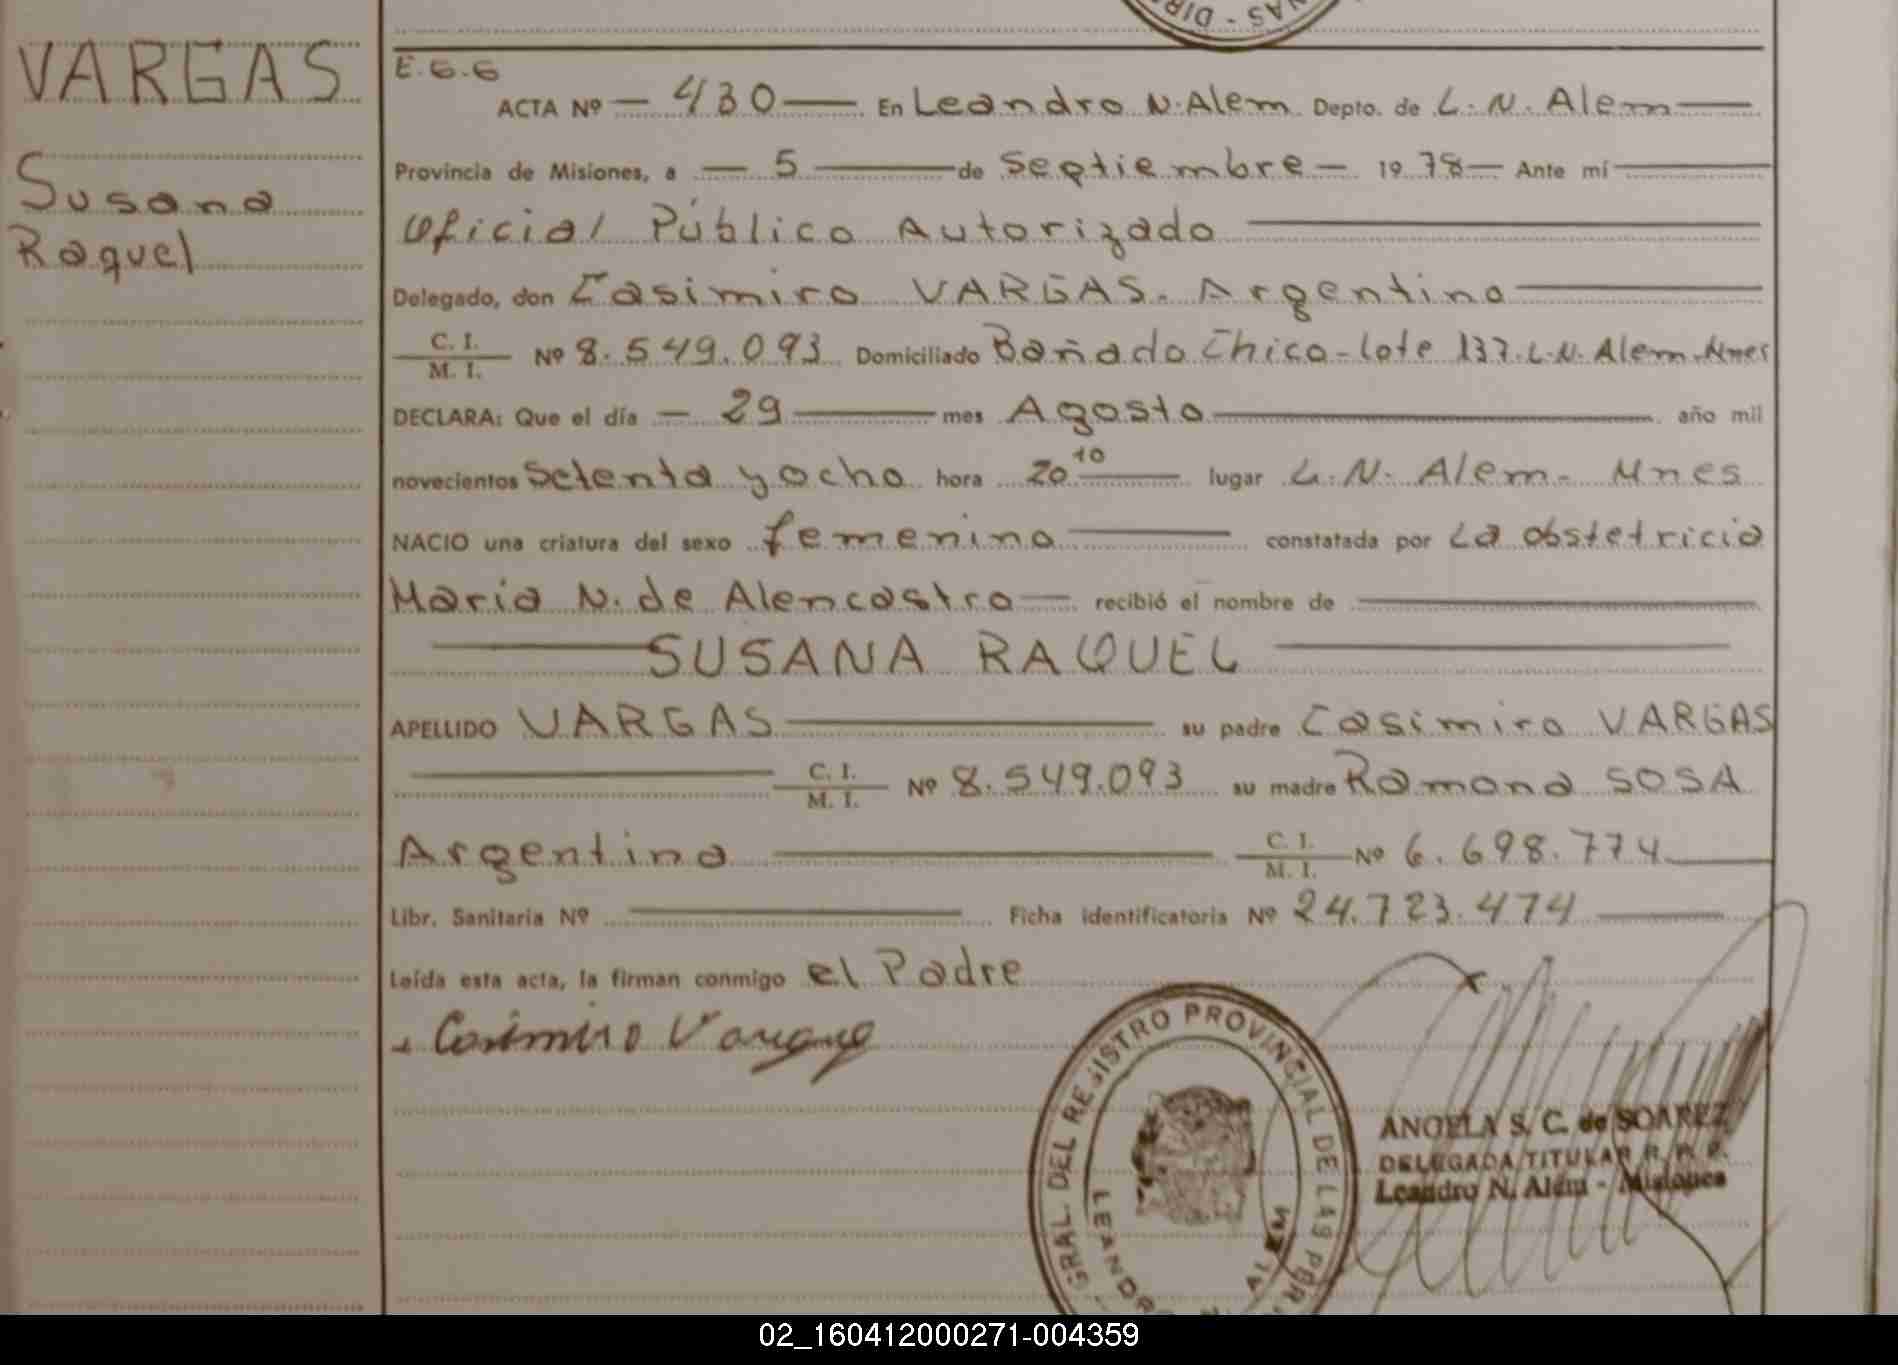 NAS - DIR
VARGAS
Susana
Raquel
E.G.G
ACTA Nº — 430 — En Leandro N. Alem Depto. de L. N. Alem —
Provincia de Misiones, a — 5 — de Septiembre — 19 78 — Ante mí —
Oficial Público Autorizado —
Delegado, don Casimiro VARGAS. Argentino —
C. I.
M. I. Nº 8.549.093 Domiciliado Bañado Chico - Lote 137. L.N. Alem. Mnes
DECLARA: Que el día — 29 — mes Agosto — año mil
novecientos Setenta y ocho hora 20 10 — lugar L. N. Alem - Mnes
NACIO una criatura del sexo femenino — constatada por La obstetricia
Maria N. de Alencastro — recibió el nombre de —
— SUSANA RAQUEL —
APELLIDO VARGAS — su padre Casimiro VARGAS
— C. I.
M. I. Nº 8.549.093 su madre Ramona SOSA
Argentina — C. I.
M. I. Nº 6.698.774 —
Libr. Sanitaria Nº — Ficha identificatoria Nº 24.723.474 —
Leída esta acta, la firman conmigo el Padre
Casimiro Vargas
GRAL. DEL REGISTRO PROVINCIAL DE LAS PER
LEANDRO N. ALEM
ANGELA S. C. de SOAREZ
DELEGADA TITULAR R. P. P.
Leandro N. Alem - Misiones
02_160412000271-004359